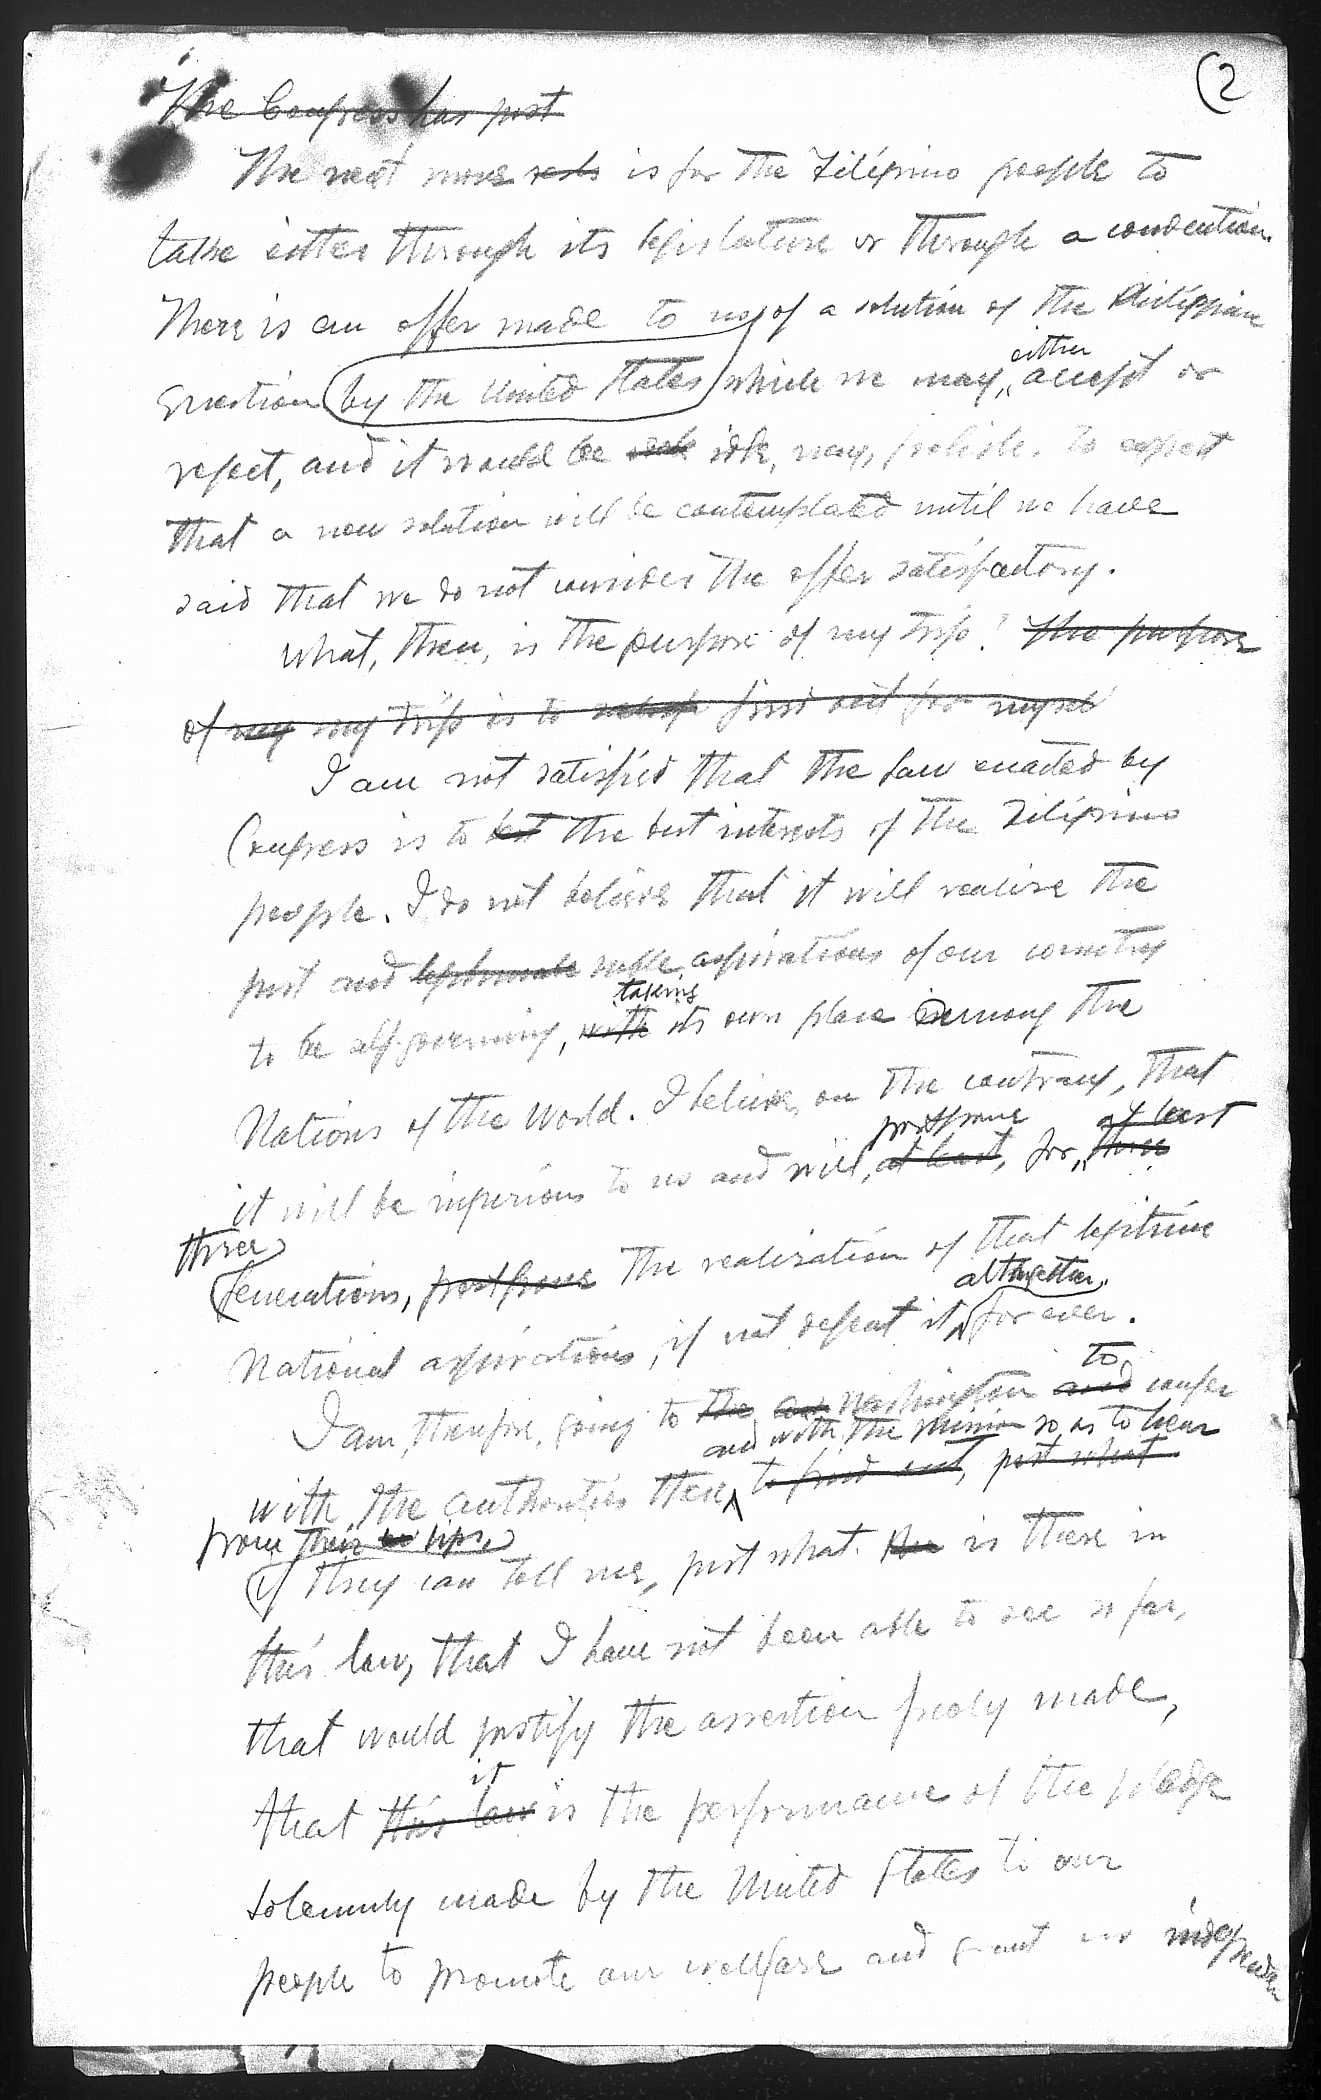 (2
The Congress has just
The next move rests is for the Filipino people to
take either through its legislature or through a convention.
There is an offer made to us of a solution of the Philippine
question by the United States which we may, either accept or
reject, and it would be idle, nay, foolish, to expect
that a new solution will be contemplated until we have
said that we do not consider the offer satisfactory.
What, then, is the purpose of my trip? The purpose
of my my trip is to find out for myself
I am not satisfied that the law enacted by
Congress is to best the best interests of the Filipino
people. I do not believe that it will realize the
just and legitimate noble aspirations of our country
taking
to be self-governing, with its own place among the
Nations of the World. I believe, on the contrary, that
postpone at least
it will be injurious to us and will, at least, for, three
three
generations, postpone the realization of that legitime
altogether
National aspirations, if not defeat it forever.
to
I am, therefore, going to the Washington and confer
and with the Mission so as to hear
with the authorities there to find out, just what
from their lips,
if they can tell me, just what is there in
this law, that I have not been able to see so far,
that would justify the assertion freely made,
it
that this law is the performance of the pledge
solemnly made by the United States to our
people to promote our welfare and grant us independen